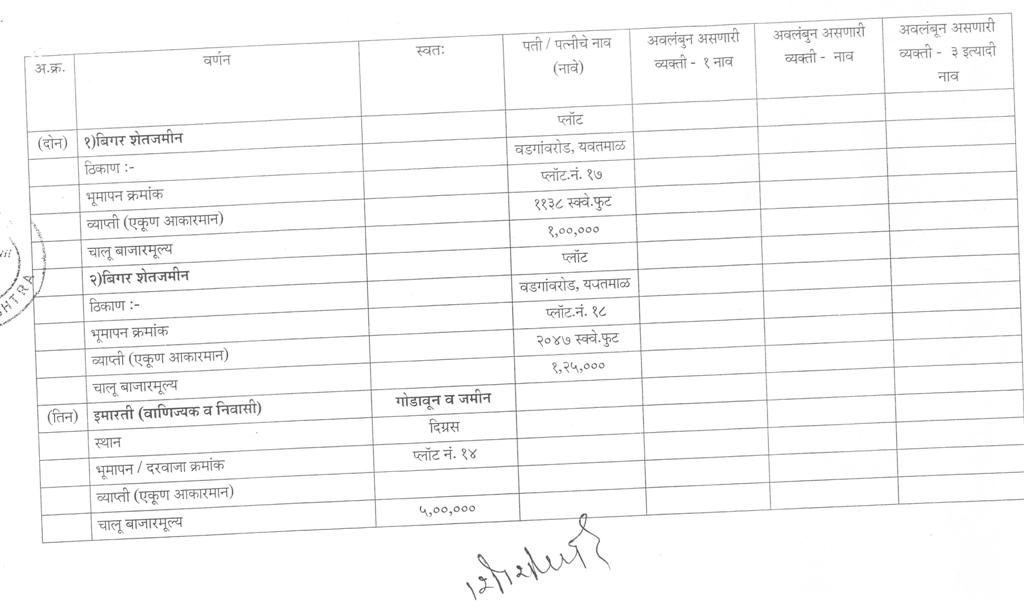 अ.क्र. वर्णन स्वतः पती / पत्नीचे नाव (नावे) अवलंबुन असणारी व्यक्ती - १ नाव अवलंबुन असणारी व्यक्ती - नाव अवलंबून असणारी व्यक्ती - ३ इत्यादी नाव
(दोन) १)बिगर शेतजमीन प्लॉट
ठिकाण :- वडगांवरोड, यवतमाळ
भूमापन क्रमांक प्लॉट.नं. १७
व्याप्ती (एकूण आकारमान) ११३८ स्क्वे.फुट
चालू बाजारमूल्य १,००,०००
२)बिगर शेतजमीन प्लॉट
ठिकाण :- वडगांवरोड, यवतमाळ
भूमापन क्रमांक प्लॉट.नं. १८
व्याप्ती (एकूण आकारमान) २०४७ स्क्वे.फुट
चालू बाजारमूल्य १,२५,०००
(तिन) इमारती (वाणिज्यक व निवासी) गोडावून व जमीन
स्थान दिग्रस
भूमापन / दरवाजा क्रमांक प्लॉट नं. १४
व्याप्ती (एकूण आकारमान)
चालू बाजारमूल्य ५,००,०००